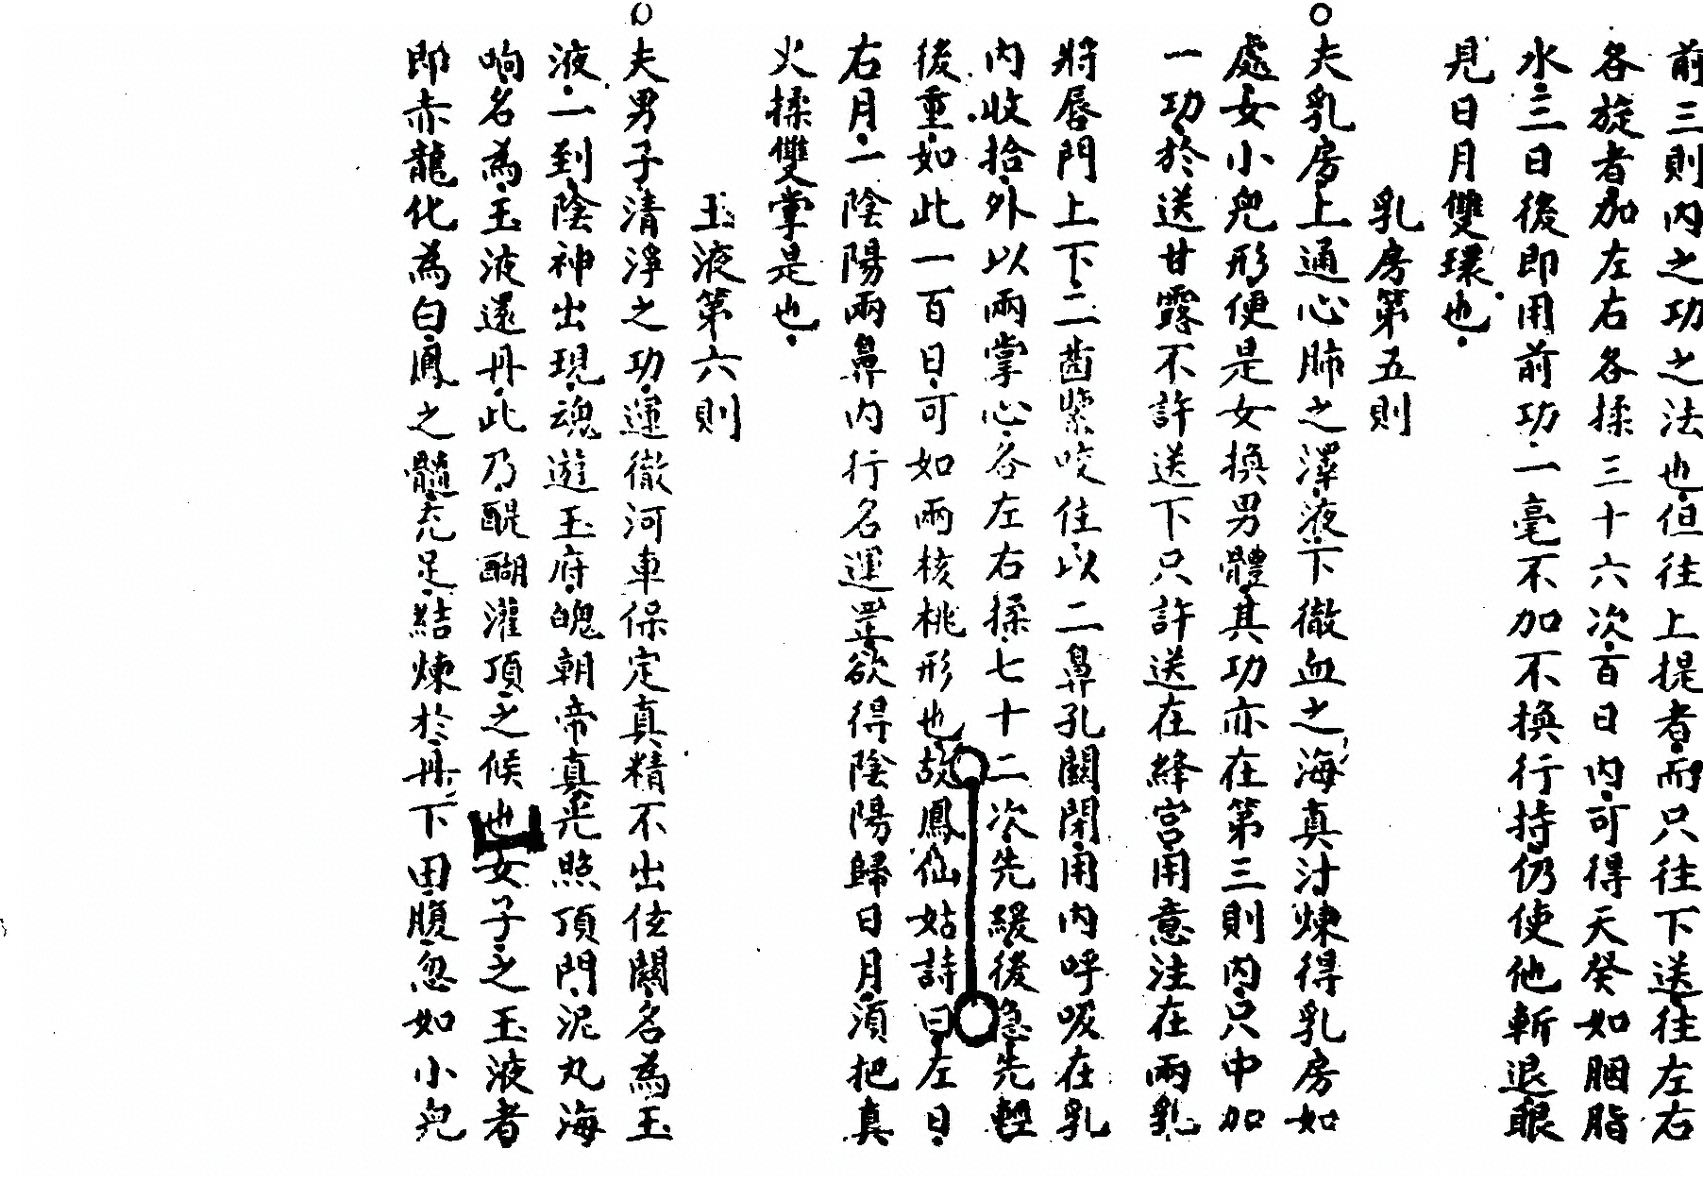 前三則內之功之法也但往上提者而只往下送往左右
各旋者加左右各揉三十六次百日內可得天癸如胭脂
水三日後即用前功一毫不加不換行持仍使他斬退眼
見日月雙環也
乳房第五則
夫乳房上通心肺之澤液下徹血之海真汁煉得乳房如
處女小兒形便是女換男體其功亦在第三則內只中加
一功於送甘露不許送下只許送在絳宮用意注在兩乳
將唇門上下二齒緊咬住以二鼻孔關閉用內呼吸在乳
內收拾外以兩掌心各左右揉七十二次先緩後急先輕
後重如此一百日可如兩核桃形也故鳳仙姑詩曰左日
右月一陰陽兩鼻內行名運罡欲得陰陽歸日月須把真
火揉雙掌是也
玉液第六則
夫男子清淨之功運徹河車保定真精不出伭關名為玉
液一到陰神出現魂遊玉府魄朝帝真光照頂門泥丸海
响名為玉液還丹此乃醍醐灌頂之候也女子之玉液者
即赤龍化為白鳳之髓充足結煉於丹下田腹忽如小兒